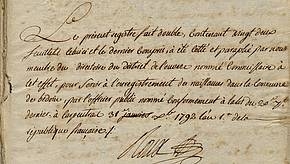 Le présent registre fait double, contenant vingt deux
feuillets celuici et le dernier compris à été cotté et paraphé par nous
membre du directoire du District de Louvèze nommé Commissaire à
cet effet, pour servir à l'enregistrement des naissances dans la Commune
de bedoin par l'officier public nommé conformement à la loi du 20 7bre
dernier. à Carpentras 31 janvier 1793 L'an 2e de la
république française /.